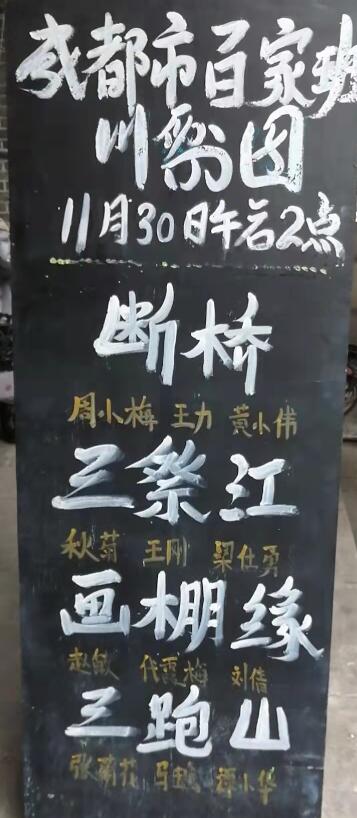 成都市百家班
川剧团
11月30日午后2点
断桥
周小梅 王力 黄小伟
三祭江
秋菊 王刚 梁仕勇
画棚缘
赵敏 代霞梅 刘倩
三跑山
张菊花 谭小华